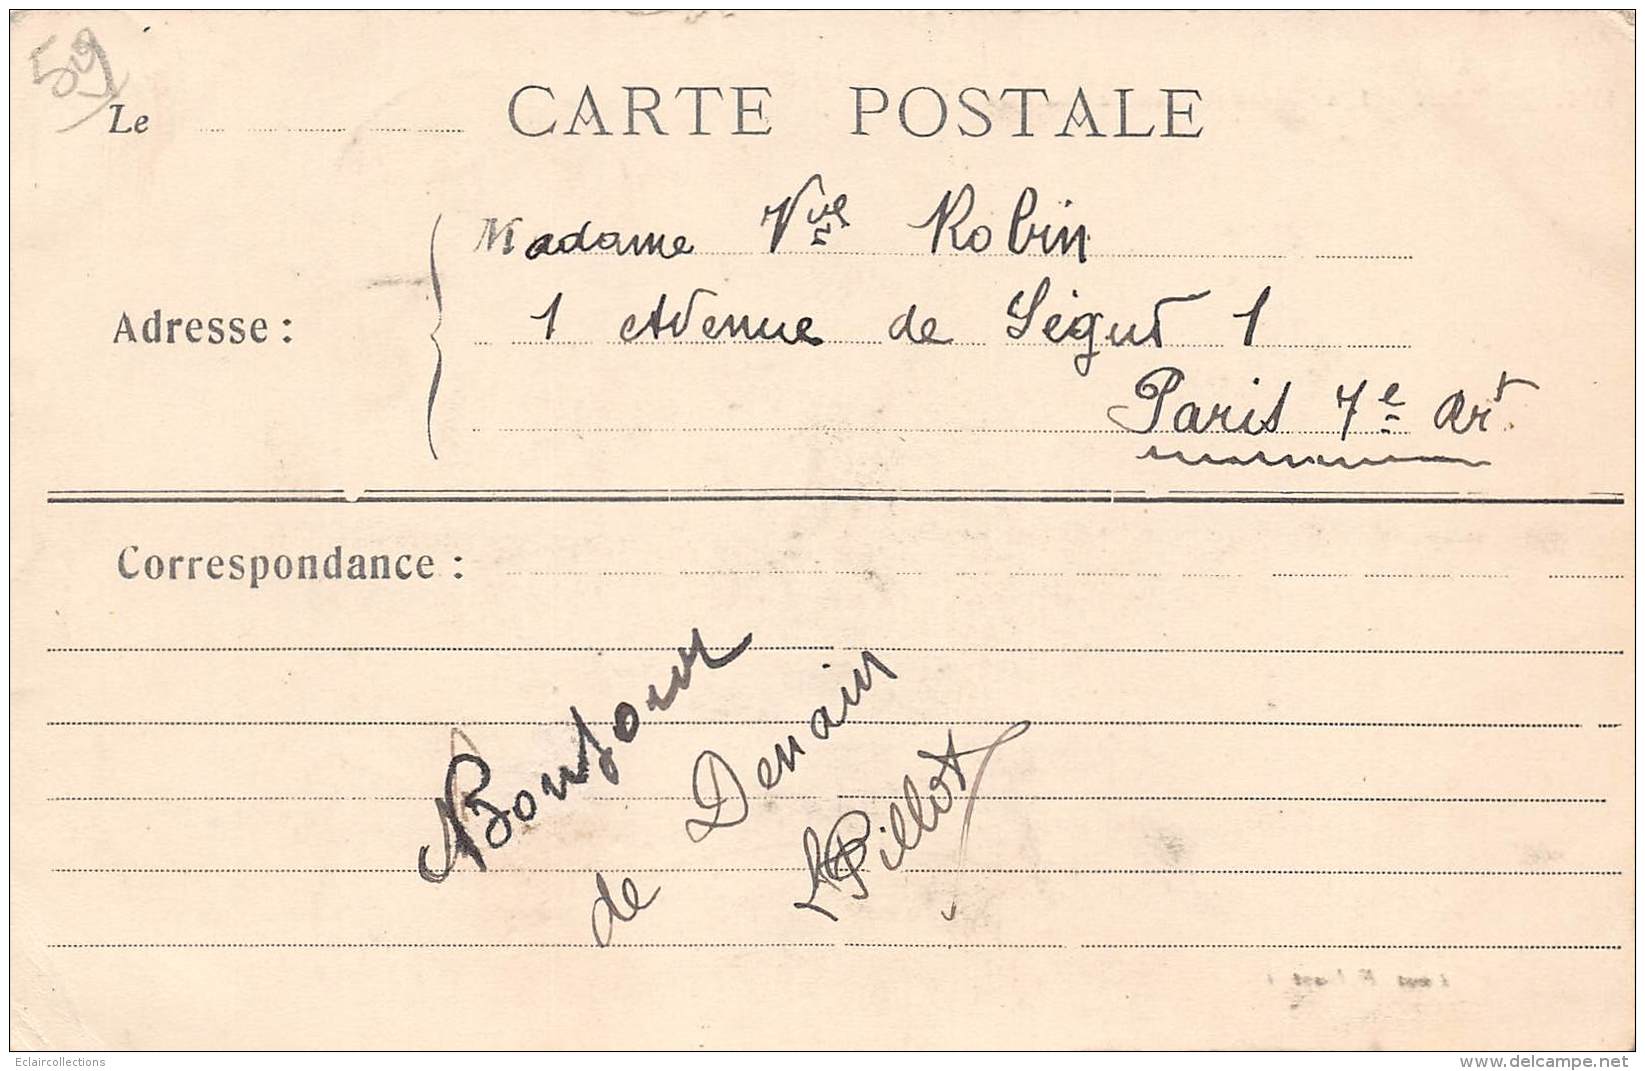 59
Le
CARTE POSTALE
Madame Vve Robin
Adresse :
1 Avenue de Ségur 1
Paris 7e Art
Correspondance :
Bonjour
de Denain
Pillot
Eclaircollections
www.delcampe.net